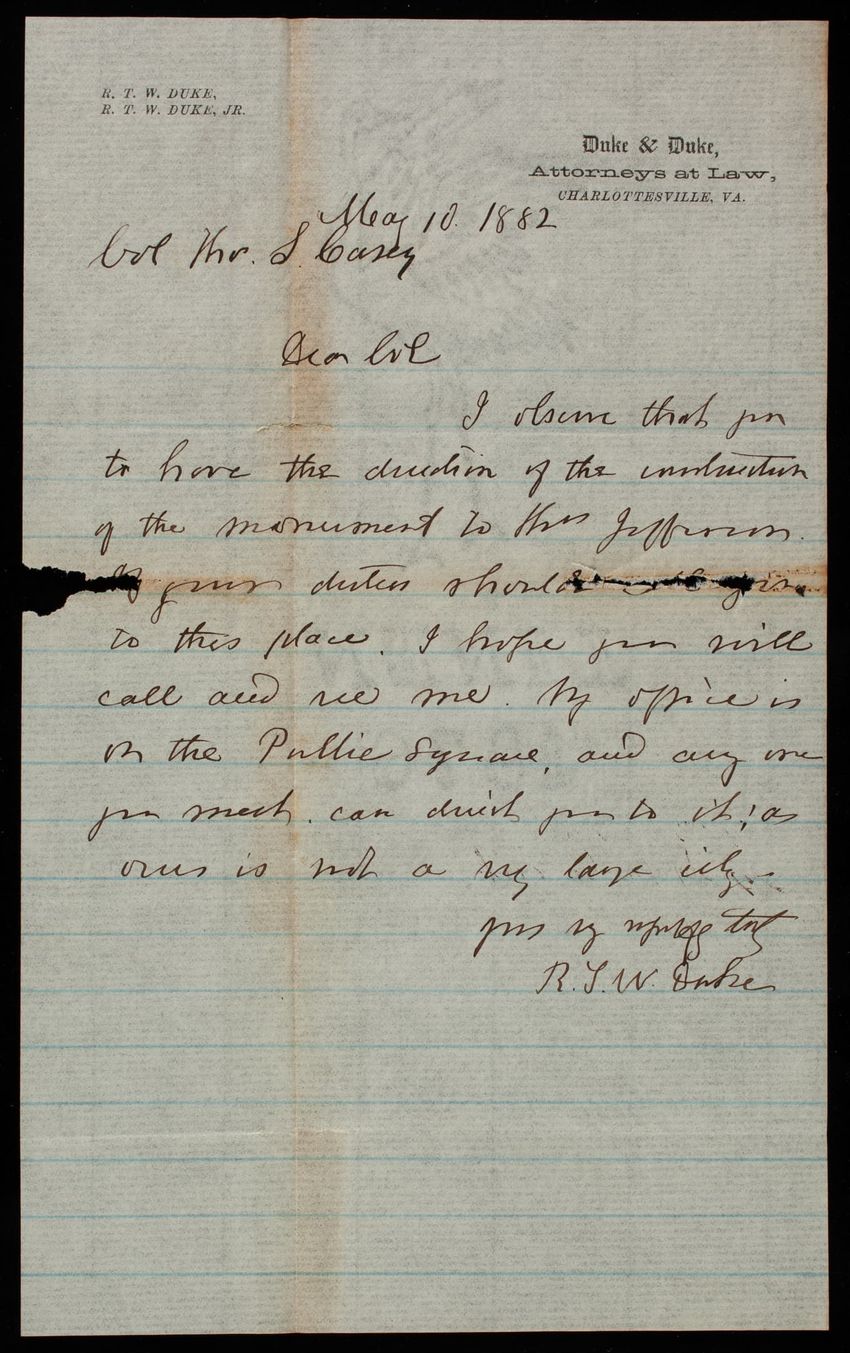 R. T. W. DUKE,
R. T. W. DUKE, JR.
Duke & Duke,
Attorneys at Law,
CHARLOTTESVILLE, VA.
May 10. 1882
Col Tho. L. Casey
Dear Col
I observe that you
to have the direction of the construction
of the monument to Thos Jefferson.
If your duties should
to this place. I hope you will
call and see me. My office is
on the Public Square, and any one
you meet. can direct you to it; as
ours is not a very large city-
yrs vy
R. T. W. Duke